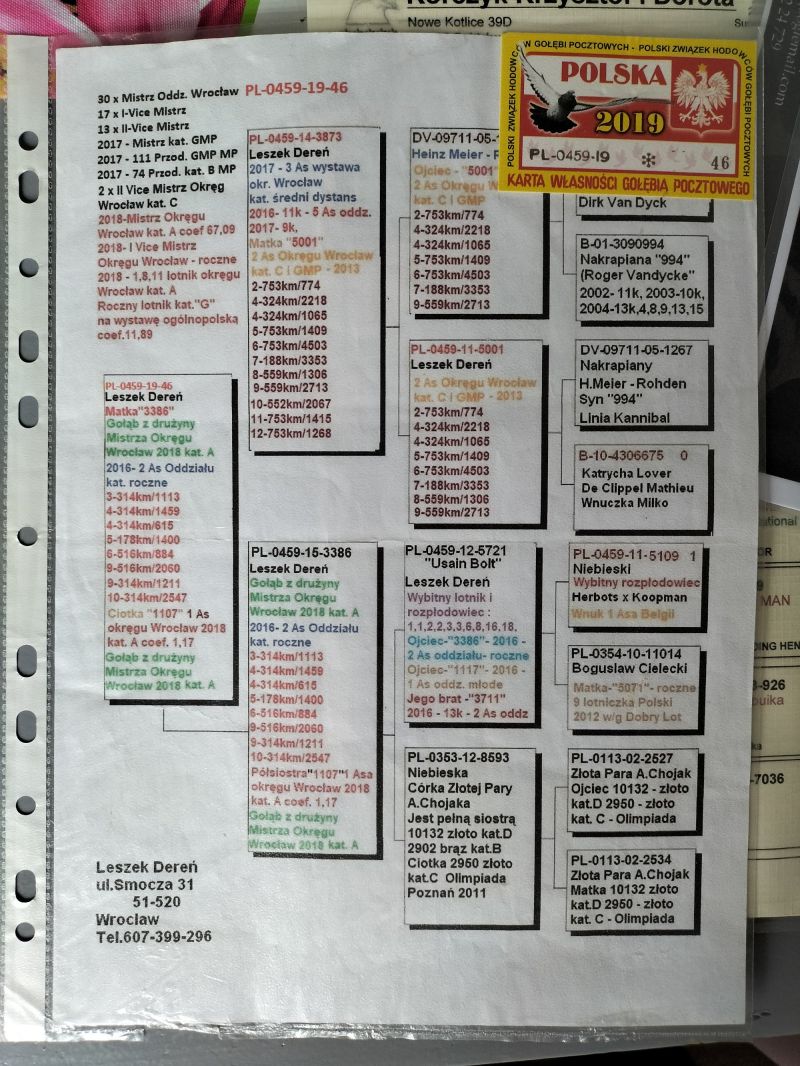 Korczyk Krzysztof i Dorota
Nowe Kotlice 39D
30 x Mistrz Oddz. Wrocław PL-0459-19-46
17 x I-Vice Mistrz
13 x II-Vice Mistrz
2017 - Mistrz kat. GMP
2017 - 111 Przod. GMP MP
2017 - 74 Przod. kat. B MP
2 x II Vice Mistrz Okręg
Wrocław kat. C
2018-Mistrz Okręgu
Wrocław kat. A coef 67,09
2018- I Vice Mistrz
Okręgu Wrocław - roczne
2018 - 1,8,11 lotnik okręgu
Wrocław kat. A
Roczny lotnik kat."G"
na wystawę ogólnopolską
coef.11,89
PL-0459-19-46
Leszek Dereń
Matka"3386"
Gołąb z drużyny
Mistrza Okręgu
Wrocław 2018 kat. A
2016- 2 As Oddziału
kat. roczne
3-314km/1113
4-314km/1459
4-314km/615
5-178km/1400
6-516km/884
9-516km/2060
9-314km/1211
10-314km/2547
Ciotka "1107" 1 As
okręgu Wrocław 2018
kat. A coef. 1,17
Gołąb z drużyny
Mistrza Okręgu
Wrocław 2018 kat. A
Leszek Dereń
ul.Smocza 31
51-520
Wrocław
Tel.607-399-296
PL-0459-14-3873
Leszek Dereń
2017 - 3 As wystawa
okr. Wrocław
kat. średni dystans
2016- 11k - 5 As oddz.
2017- 9k,
Matka "5001"
2 As Okręgu Wrocław
kat. C i GMP - 2013
2-753km/774
4-324km/2218
4-324km/1065
5-753km/1409
6-753km/4503
7-188km/3353
8-559km/1306
9-559km/2713
10-552km/2067
11-753km/1415
12-753km/1268
PL-0459-15-3386
Leszek Dereń
Gołąb z drużyny
Mistrza Okręgu
Wrocław 2018 kat. A
2016- 2 As Oddziału
kat. roczne
3-314km/1113
4-314km/1459
4-314km/615
5-178km/1400
6-516km/884
9-516km/2060
9-314km/1211
10-314km/2547
Półsiostra"1107"1 Asa
okręgu Wrocław 2018
kat. A coef. 1,17
Gołąb z drużyny
Mistrza Okręgu
Wrocław 2018 kat. A
DV-09711-05-1
Heinz Meier - R
Ojciec - "5001"
2 As Okręgu W
kat. C i GMP
2-753km/774
4-324km/2218
4-324km/1065
5-753km/1409
6-753km/4503
7-188km/3353
9-559km/2713
PL-0459-11-5001
Leszek Dereń
2 As Okręgu Wrocław
kat. C i GMP - 2013
2-753km/774
4-324km/2218
4-324km/1065
5-753km/1409
6-753km/4503
7-188km/3353
8-559km/1306
9-559km/2713
PL-0459-12-5721
"Usain Bolt"
Leszek Dereń
Wybitny lotnik i
rozpłodowiec :
1,1,2,2,3,3,6,8,16,18,
Ojciec-"3386"- 2016 -
2 As oddziału- roczne
Ojciec-"1117"- 2016 -
1 As oddz. młode
Jego brat -"3711"
2016 - 13k - 2 As oddz
PL-0353-12-8593
Niebieska
Córka Złotej Pary
A.Chojaka
Jest pełną siostrą
10132 złoto kat.D
2902 brąz kat.B
Ciotka 2950 złoto
kat.C Olimpiada
Poznań 2011
POLSKI ZWIĄZEK HODOWCÓW GOŁĘBI POCZTOWYCH - POLSKI ZWIĄZEK HODOWCÓW GOŁĘBI POCZTOWYCH
POLSKA
2019
PL-0459-19 * 46
KARTA WŁASNOŚCI GOŁĘBIA POCZTOWEGO
Dirk Van Dyck
B-01-3090994
Nakrapiana "994"
(Roger Vandycke"
2002- 11k, 2003-10k,
2004-13k,4,8,9,13,15
DV-09711-05-1267
Nakrapiany
H.Meier - Rohden
Syn "994"
Linia Kannibal
B-10-4306675 0
Katrycha Lover
De Clippel Mathieu
Wnuczka Milko
PL-0459-11-5109 1
Niebieski
Wybitny rozpłodowiec
Herbots x Koopman
Wnuk 1 Asa Belgii
PL-0354-10-11014
Bogusław Cielecki
Matka-"5071"- roczne
9 lotniczka Polski
2012 w/g Dobry Lot
PL-0113-02-2527
Złota Para A.Chojak
Ojciec 10132 - złoto
kat.D 2950 - złoto
kat. C - Olimpiada
PL-0113-02-2534
Złota Para A.Chojak
Matka 10132 złoto
kat.D 2950 - złoto
kat. C - Olimpiada
MAN
DING HEN
-926
-7036